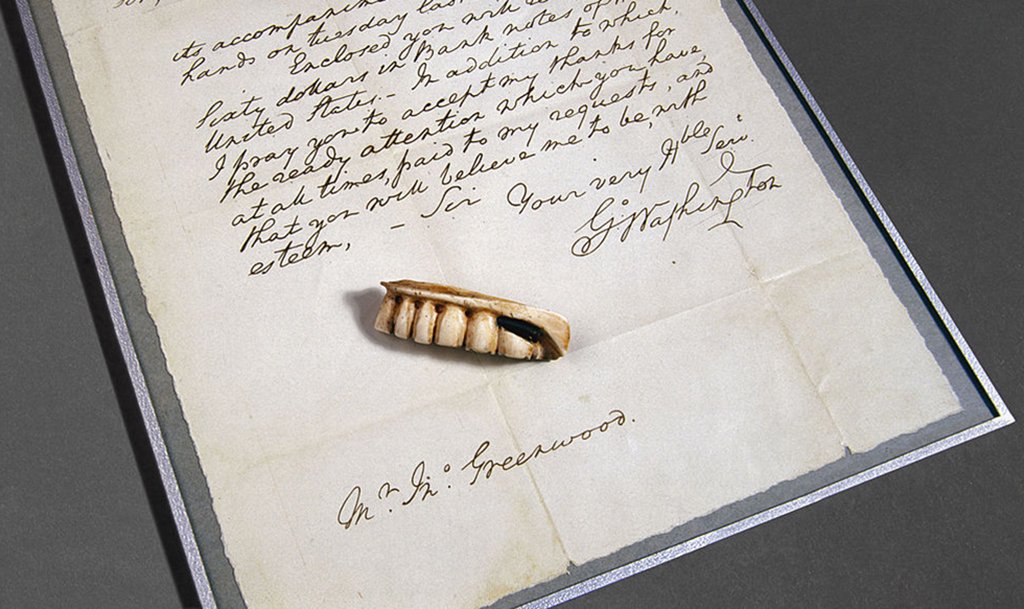 its accompanim
hands on Tuesday las
Enclosed you will
Sixty dollars in Bank notes of
United States. – In addition to which,
I pray you to accept my thanks for
the ready attention which you have,
at all times, paid to my requests, and
that you will believe me to be, with
esteem, – Sir Your very Hble Servt.
Go Washington
Mr. Jno. Greenwood.